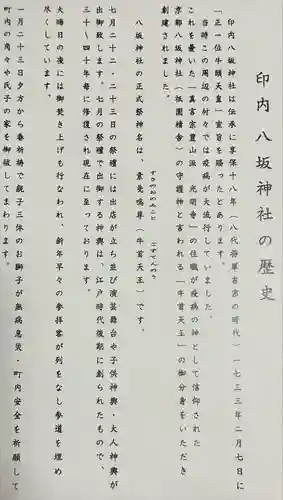 印内八坂神社の歴史
印内八坂神社は伝承に享保十八年(八代将軍吉宗の時代)一七三三年二月七日に
「正一位牛頭天皇」宣旨を賜ったとあります。
当時この周辺の村々では疫病が大流行していました。
これを憂いた「真言宗豊山派 光明寺」の住職が疫病の神として信仰された
京都八坂神社(祇園精舎)の守護神と言われる「牛首天王」の御分身をいただき
創建されました。
八坂神社の正式祭神名は、素戔嗚尊(牛首天王)です。
すさのおのみこと
ごずてんのう
七月二十二・二十三日の祭禮には出店が立ち並び演芸舞台や子供神輿・大人神輿が
出御致します。七月の祭禮で出御する神輿は、江戸時代後期に創られたもので、
三十~四十年毎に修復され現在に至っております。
大晦日の夜には御焚き上げも行なわれ、新年早々の参拝客が列をなし参道を埋め
尽くしています。
一月二十三日夕方から春祈祷で親子三体のお獅子が無病息災・町内安全を祈願して
町内の角々や氏子の家を御祓してまわります。